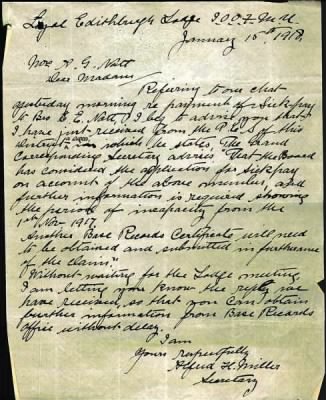 Loyal Edithburgh Lodge I.O.O.F. M.U.
January 15th 1918,
Mrs A. G. Nott
Dear Madam
Refering to our chat
yesterday morning re payment of Sickpay
to Bro E E. Nott, I beg to advise you that
I have just received from the P.C.S of this
District, in which he states, The Grand
Corresponding Secretary advises "That the Board
has considered the application for Sickpay
on account of the above member, and
further information is required showing
the period of incapacity from the
1st Nov. 1917.
Another Base Records Certificate will need
to be obtained and submitted in furtherance
of the claim."
Without waiting for the Lodge meeting,
I am letting you know the reply we
have received, so that you can obtain
further information from Base Records
office without delay.
I am
Yours respectfully
Alfred H. Miller
Secretary